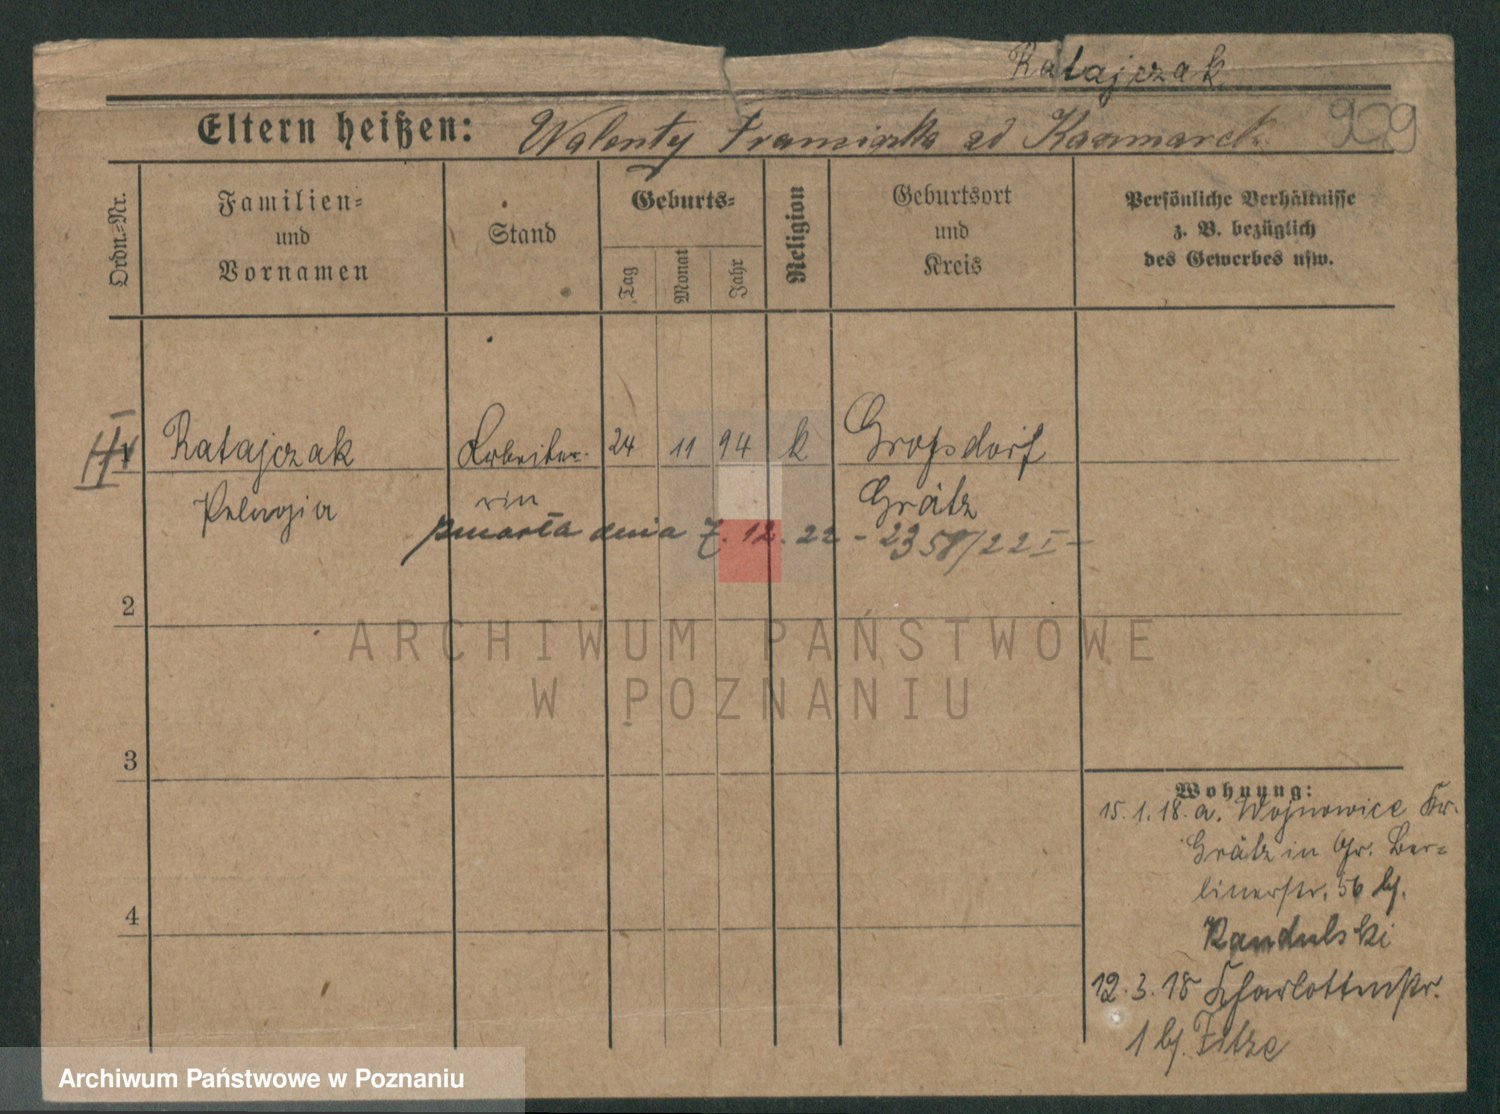 Ratajczak
Eltern heißen: Walenty Franziszka zd Kaczmarek
909
Ordn.-Nr.
Familien-
und
Vornamen
Stand
Geburts-
Tag
Monat
Jahr
Religion
Geburtsort
und
Kreis
Persönliche Verhältnisse
z. B. bezüglich
des Gewerbes usw.
II
1 Ratajczak Arbeite- 24 11 94 k Großdorf
Pelagia rin Grätz
zmarła dnia 7.12.22 - 2358/22 I -
2
ARCHIWUM PAŃSTWOWE
W POZNANIU
3
Wohnung:
15.1.18. a. Wojnowice Kr.
Grätz in Gr. Ber-
linerstr. 56 bj.
Randulski
4
12.3.18 Charlottenstr.
1 bj. Fitze
Archiwum Państwowe w Poznaniu